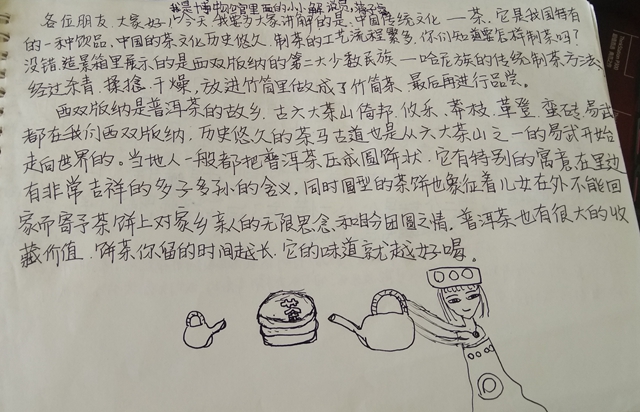 我是博物馆里面的小小解说员,
各位朋友,大家好!今天我要多大家讲解的是:中国传统文化——茶,它是我国特有
的一种饮品,中国的茶文化历史悠久,制茶的工艺流程繁多,你们知道要怎样制茶吗?
没错,这景箱里展示的是西双版纳的第二大少数民族——哈尼族的传统制茶方法,
经过杀青、揉捻、干燥,放进竹筒里做成了竹筒茶,最后再进行品尝。
西双版纳是普洱茶的故乡,古六大茶山倚邦、攸乐、莽枝、革登、蛮砖、易武
都在我们西双版纳,历史悠久的茶马古道也是从六大茶山之一的易武开始
走向世界的。当地人一般都把普洱茶压成圆饼状,它有特别的寓意在里边
有非常吉祥的多子多孙的含义,同时圆型的茶饼也象征着儿女在外不能回
家而寄予茶饼上对家乡亲人的无限思念,和盼团圆之情。普洱茶也有很大的收
藏价值,饼茶你留的时间越长,它的味道就越好喝。
茶